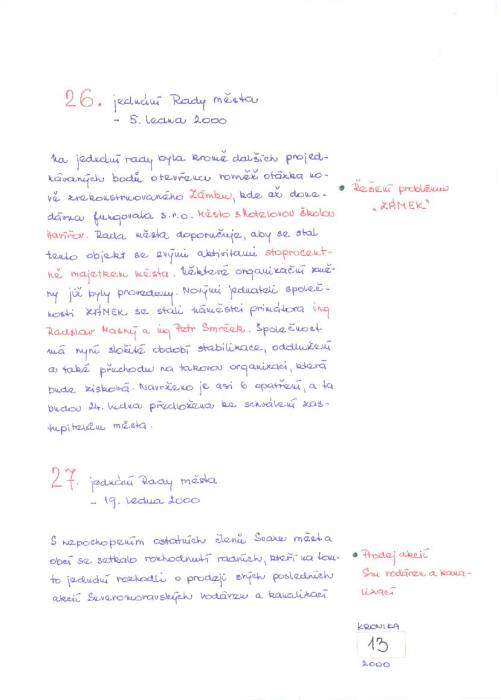 26. jednání Rady města
- 5. ledna 2000
Na jednání rady byla kromě dalších projed-
návaných bodů otevřena rovněž otázka no-
vě zrekonstruovaného Zámku, kde až done-
dávna fungovala s.r.o. Město s Hotelovou školou
Havířov. Rada města doporučuje, aby se stal
tento objekt se svými aktivitami stoprocent-
ně majetkem města. Některé organizační změ-
ny již byly provedeny. Novými jednateli společ-
nosti ZÁMEK se stali náměstci primátora ing
Radslav Masný a ing Petr Smrček. Společnost
má nyní složité období stabilizace, oddlužení
a také přechodu na takovou organizaci, která
bude zisková. Navrženo je asi 6 opatření, a ta
budou 24. ledna předložena ke schválení zas-
tupitelům města.
Řešení problému
"ZÁMEK"
27. jednání Rady města
- 19. ledna 2000
S nepochopením ostatních členů Svazu města
obcí se setkalo rozhodnutí radních, kteří na tom-
to jednání rozhodli o prodeji svých posledních
akcií Severomoravských vodáren a kanalizací
Prodej akcií
Sm vodáren a kana-
lizací
KRONIKA
13
2000